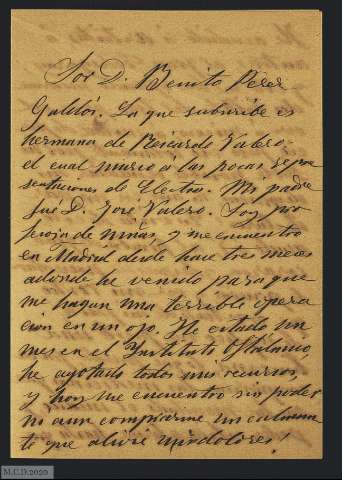 Sor D. Benito Perez
Galdós. La que subscribe es
hermana de Ricardo Valero.
el cual murió á las pocas repre
sentaciones de Electra. Mi padre
fué D. José Valero. Soy pro
fesora de niñas, y me encuentro
en Madrid desde hace tres meses
adonde he venido para que
me hagan una terrible opera
cion en un ojo. He estado un
mes en el Ynstituto Oftalmico
he agotado todos mis recursos,
y hoy me encuentro sin poder
ni aun comprarme un calman
te que alivie mis dolores!
M.C.D.2020